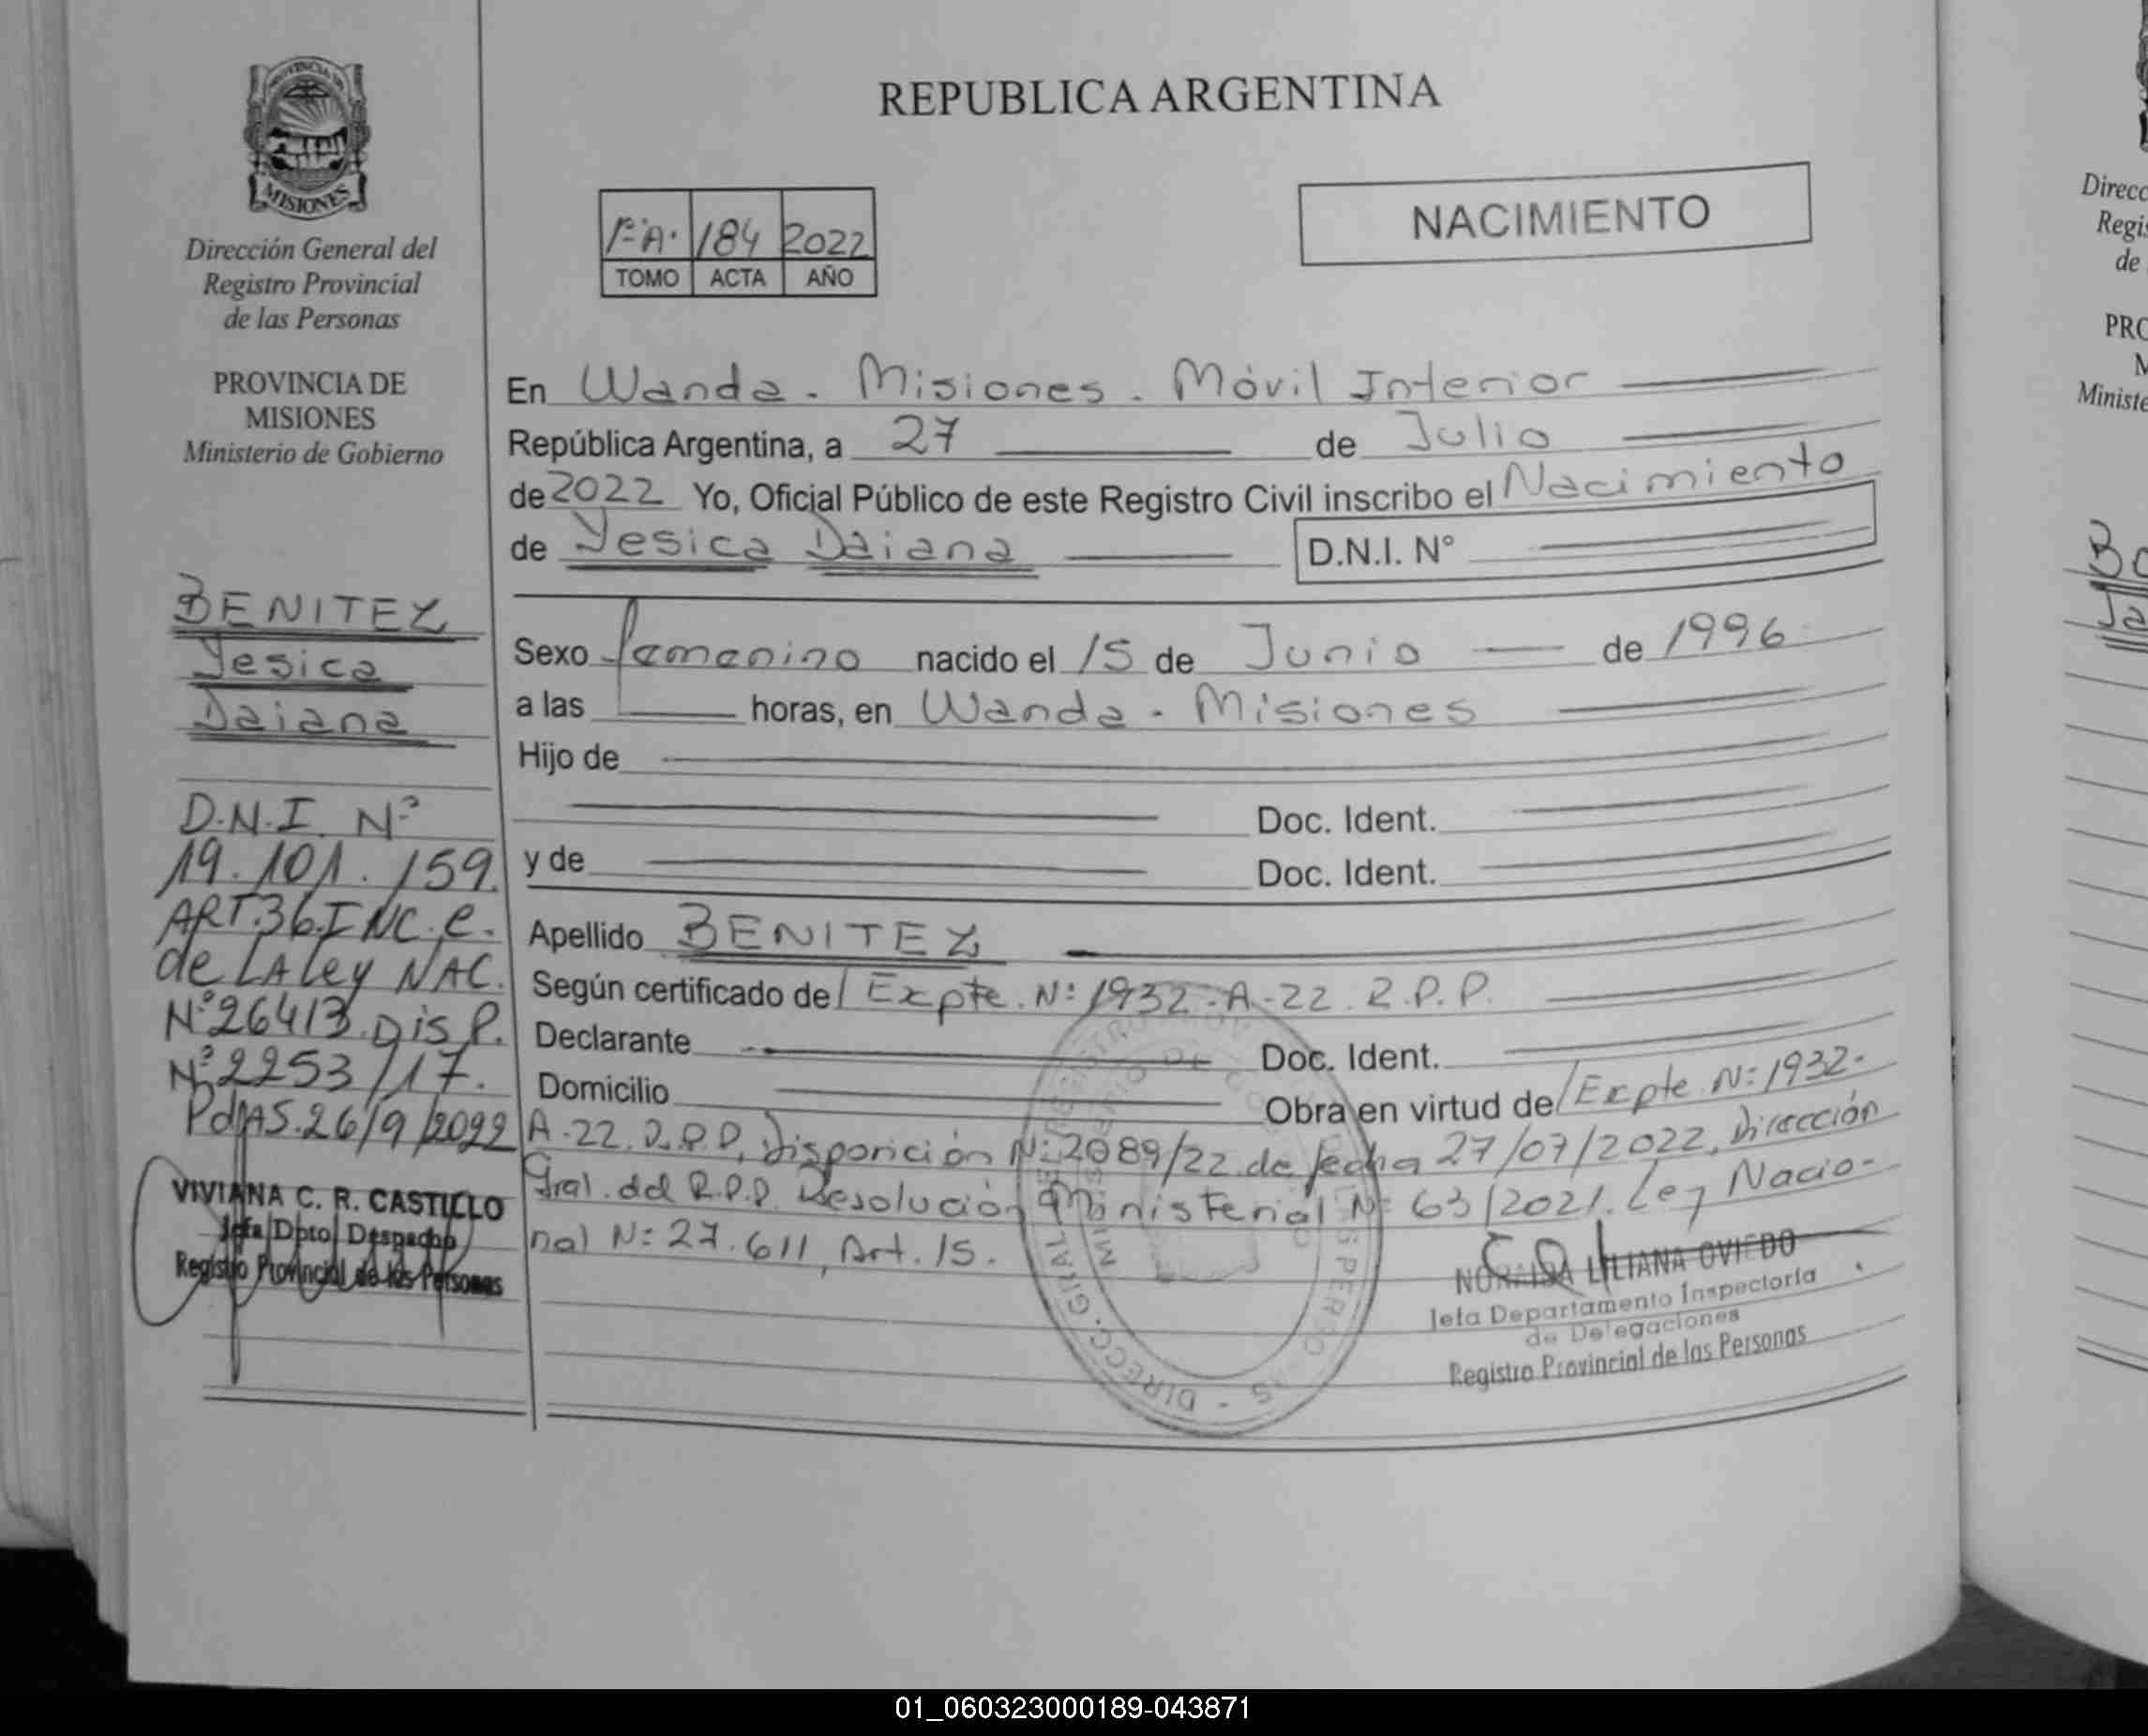 PROVINCIA DE
MISIONES
Dirección General del
Registro Provincial
de las Personas
PROVINCIA DE
MISIONES
Ministerio de Gobierno
BENITEZ
Yesica
Daiana
D.N.I. Nº
19.101.159.
ART.36.INC.e.
de LA Ley NAC.
Nº26413.DisP.
Nº2253/17.
PdAS.26/9/2022
VIVIANA C. R. CASTILLO
Jefa Dpto. Despacho
Registro Provincial de las Personas
REPUBLICA ARGENTINA
1ºA. 184 2022
TOMO ACTA AÑO
NACIMIENTO
En Wanda - Misiones - Móvil Interior
República Argentina, a 27 de Julio
de 2022 Yo, Oficial Público de este Registro Civil inscribo el Nacimiento
de Yesica Daiana D.N.I. Nº
Sexo femenino nacido el 15 de Junio de 1996
a las horas, en Wanda - Misiones
Hijo de
Doc. Ident.
y de Doc. Ident.
Apellido BENITEZ
Según certificado de Expte. Nº 1932-A-22. R.P.P.
Declarante Doc. Ident.
Domicilio Obra en virtud de Expte Nº 1932-
A-22. R.P.P, Disposición Nº 2089/22 de fecha 27/07/2022, Dirección
Gral. del R.P.P. Resolución Ministerial Nº 63/2021. Ley Nacio-
nal Nº 27.611, Art. 15.
LILIANA OVIEDO
Jefa Departamento Inspectoría
de Delegaciones
Registro Provincial de las Personas
Direcc
Regis
de
PRO
M
Ministe
01_060323000189-043871